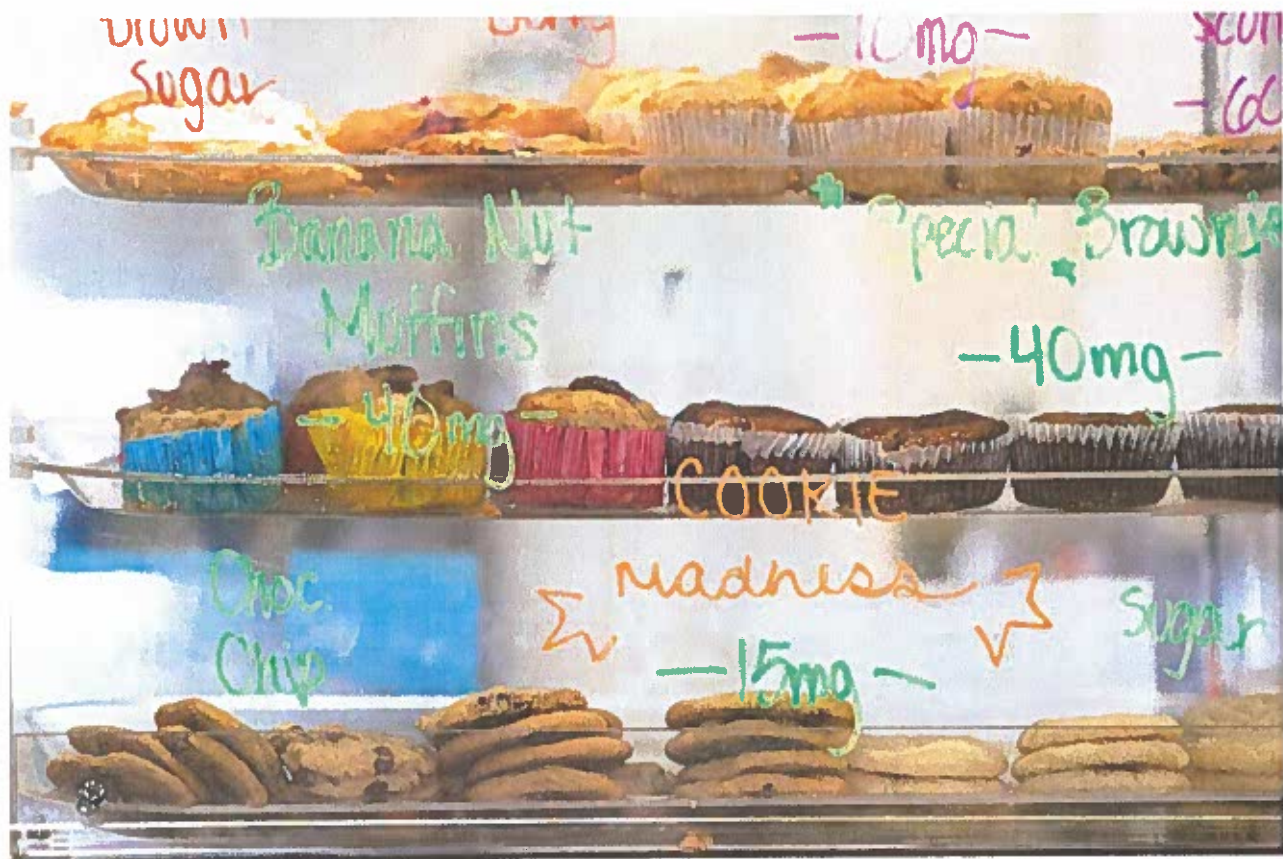 Brown
Sugar
-10mg-
Banana Nut
Muffins
-40mg-
Special Brownie
-40mg-
COOKIE
madness
-15mg-
Choc.
Chip
Sugar